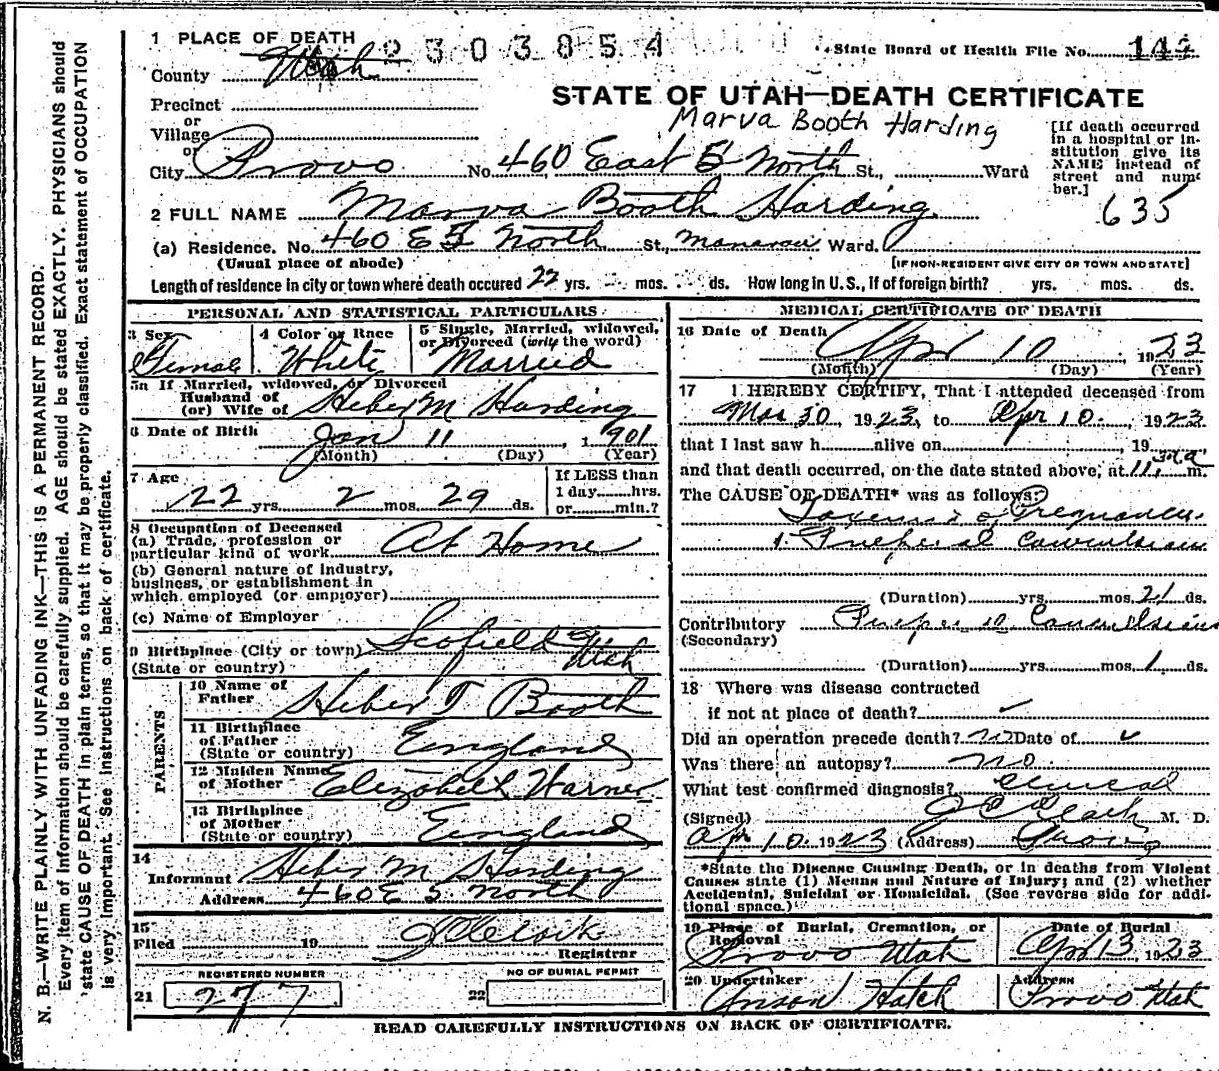 1 PLACE OF DEATH 2303854 State Board of Health File No.
County Utah
STATE OF UTAH—DEATH CERTIFICATE
Precinct
or
Village
Marva Booth Harding
or
City Provo No. 460 East 5 North St., Ward
[If death occurred in a hospital or institution give its NAME instead of street and number.]
635
2 FULL NAME Marva Booth Harding
(a) Residence. No. 460 E 5 North St., Ward.
(Usual place of abode) [IF NON-RESIDENT GIVE CITY OR TOWN AND STATE]
Length of residence in city or town where death occured 22 yrs. mos. ds. How long in U. S., If of foreign birth? yrs. mos. ds.
PERSONAL AND STATISTICAL PARTICULARS
3 Sex Female
4 Color or Race White
5 Single, Married, widowed, or Divorced (write the word) Married
5a If Married, widowed, or Divorced
Husband of
(or) Wife of Heber M Harding
6 Date of Birth Jan 11, 1901
(Month) (Day) (Year)
7 Age
22 yrs. 2 mos. 29 ds.
If LESS than
1 day......hrs.
or......min.?
8 Occupation of Deceased
(a) Trade, profession or
particular kind of work At Home
(b) General nature of industry,
business, or establishment in
which employed (or employer)
(c) Name of Employer
9 Birthplace (City or town) Scofield
(State or country) Utah
PARENTS
10 Name of
Father Heber T Booth
11 Birthplace
of Father
(State or country) England
12 Maiden Name
of Mother Elizabeth Warner
13 Birthplace
of Mother
(State or country) England
14
Informant Heber M Harding
Address 460 E 5 North
15
Filed 19 J Clark
Registrar
REGISTERED NUMBER
21 277
NO OF BURIAL PERMIT
22
MEDICAL CERTIFICATE OF DEATH
16 Date of Death Apr 10, 1923
(Month) (Day) (Year)
17 I HEREBY CERTIFY, That I attended deceased from
Mar 30 1923, to Apr 10, 1923
that I last saw h......alive on 19
and that death occurred, on the date stated above, at 11.30 a m.
The CAUSE OF DEATH* was as follows:
Toxemia of Pregnancy
Puerperal Convulsions
(Duration) yrs. mos. 21 ds.
Contributory Puerperal Convulsions
(Secondary)
(Duration) yrs. mos. 1 ds.
18 Where was disease contracted
if not at place of death?
Did an operation precede death? no Date of
Was there an autopsy? no
What test confirmed diagnosis? Clinical
(Signed) J Clark M. D.
Apr 10, 1923 (Address) Provo
*State the Disease Causing Death, or in deaths from Violent
Causes state (1) Means and Nature of Injury; and (2) whether
Accidental, Suicidal or Homicidal. (See reverse side for addi-
tional space.)
19 Place of Burial, Cremation, or
Removal
Provo Utah
Date of Burial
Apr 13, 1923
20 Undertaker
Anson Hatch
Address
Provo Utah
READ CAREFULLY INSTRUCTIONS ON BACK OF CERTIFICATE.
N. B.—WRITE PLAINLY WITH UNFADING INK—THIS IS A PERMANENT RECORD.
Every item of information should be carefully supplied. AGE should be stated EXACTLY. PHYSICIANS should
state CAUSE OF DEATH in plain terms, so that it may be properly classified. Exact statement of OCCUPATION
is very important. See instructions on back of certificate.